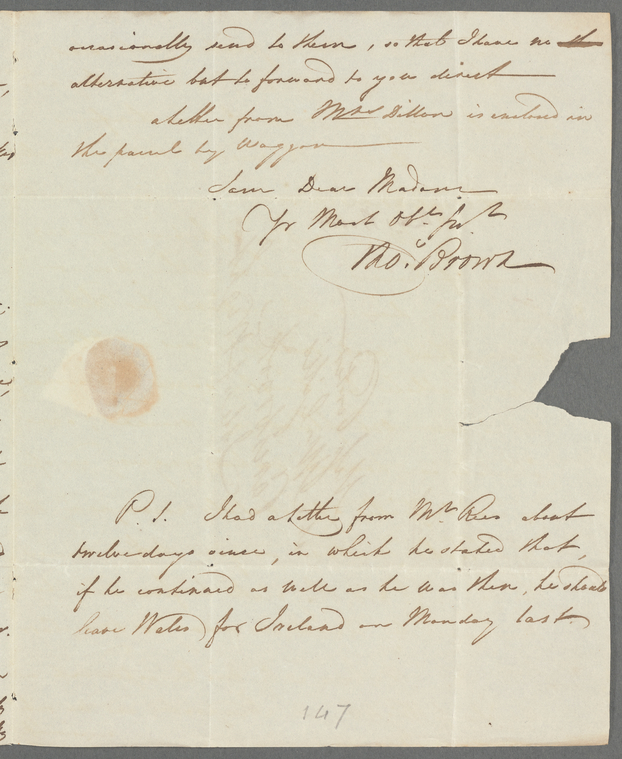 occasionally send to them, so that I have no
alternative but to forward to you direct
a letter from Mrs Dillon is enclosed in
the parcel by Waggon
I am Dear Madam
Yr Most Obt Sert
Thos. Brown
P.S. I had a letter from Mr Rees about
twelve days since, in which he stated that,
if he continued as well as he was then, he should
leave Wales for Ireland on Monday last.
147